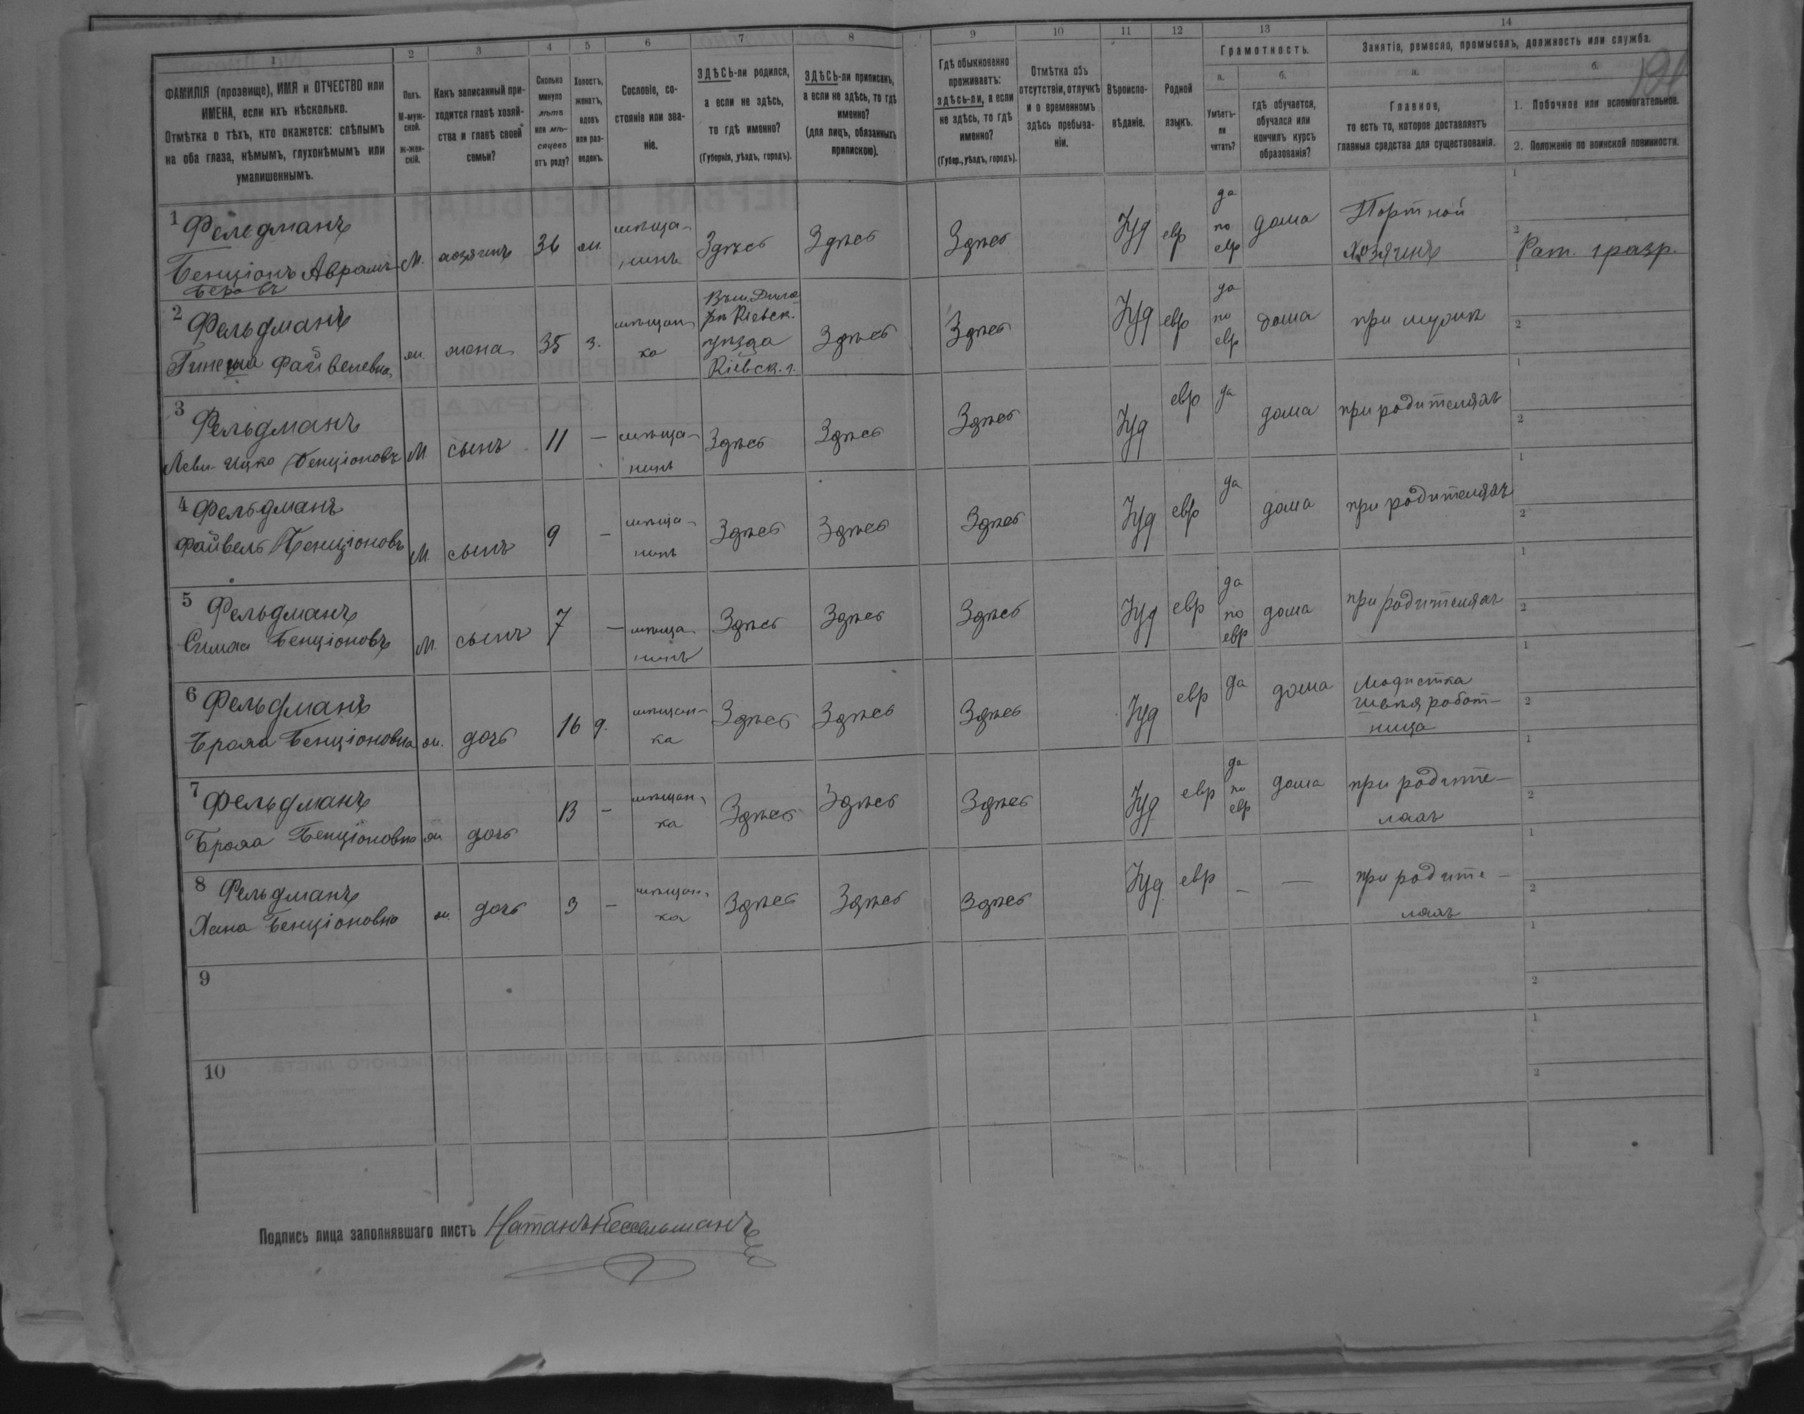 1 2 3 4 5 6 7 8 9 10 11 12 13 14
ФАМИЛІЯ (прозвище), ИМЯ и ОТЧЕСТВО или
ИМЕНА, если ихъ нѣсколько.
Отмѣтка о тѣхъ, кто окажется: слѣпымъ
на оба глаза, нѣмымъ, глухонѣмымъ или
умалишеннымъ.
Полъ.
М-муж-
ской.
Ж-жен-
скій.
Какъ записанный при-
ходится главѣ хозяй-
ства и главѣ своей
семьи?
Сколько
минуло
лѣтъ
или мѣ-
сяцевъ
отъ роду?
Холостъ,
женатъ,
вдовъ
или раз-
веденъ.
Сословіе, со-
стояніе или зва-
ніе.
ЗДѢСЬ-ли родился,
а если не здѣсь,
то гдѣ именно?
(Губернія, уѣздъ, городъ).
ЗДѢСЬ-ли приписанъ,
а если не здѣсь, то гдѣ
именно?
(для лицъ, обязанныхъ
припискою).
Гдѣ обыкновенно
проживаетъ:
здѣсь-ли, а если
не здѣсь, то гдѣ
именно?
(Губер., уѣздъ, городъ).
Отмѣтка объ
отсутствіи, отлучкѣ
и о временномъ
здѣсь пребыва-
ніи.
Вѣроиспо-
вѣданіе.
Родной
языкъ.
Грамотность.
а.
Умѣетъ-
ли
читать?
б.
гдѣ обучается,
обучался или
кончилъ курсъ
образованія?
Занятіе, ремесло, промыселъ, должность или служба.
а.
Главное,
то есть то, которое доставляетъ
главныя средства для существованія.
б.
1. Побочное или вспомогательное.
2. Положеніе по воинской повинности.
1 Фельдманъ
Бенціонъ Аврамъ-
Беровъ
М. хозяинъ 36 ж. мѣща-
нинъ
Здѣсь Здѣсь Здѣсь Іуд евр
да
по
евр
дома
Портной
хозяинъ
1
2 Рат. 1 разр.
2 Фельдманъ
Файвелевна
ж. жена 35 з. мѣщан-
ка
Кіевск.
уѣзда
Кіевск. г.
Здѣсь Здѣсь Іуд евр
да
по
евр
дома при мужѣ
1
2
3 Фельдманъ
Леви-Ицко Бенціоновъ
М сынъ 11 — мѣща-
нинъ
Здѣсь Здѣсь Здѣсь Іуд евр да дома при родителяхъ
1
2
4 Фельдманъ
Файвель Бенціоновъ
М. сынъ 9 — мѣща-
нинъ
Здѣсь Здѣсь Здѣсь Іуд евр да дома при родителяхъ
1
2
5 Фельдманъ
Симха Бенціоновъ
М. сынъ 7 — мѣща-
нинъ
Здѣсь Здѣсь Здѣсь Іуд евр
да
по
евр
дома при родителяхъ
1
2
6 Фельдманъ
Бенціоновна
ж. дочь 16 д. мѣщан-
ка
Здѣсь Здѣсь Здѣсь Іуд евр да дома
Модистка
работ-
ница
1
2
7 Фельдманъ
Бенціоновна
ж дочь 13 — мѣщан-
ка
Здѣсь Здѣсь Здѣсь Іуд евр
да
по
евр
дома
при родите-
ляхъ
1
2
8 Фельдманъ
Хана Бенціоновна
ж. дочь 3 — мѣщан-
ка
Здѣсь Здѣсь Здѣсь Іуд евр — —
при родите-
ляхъ
1
2
9
1
2
10
1
2
Подпись лица заполнявшаго листъ Натанъ